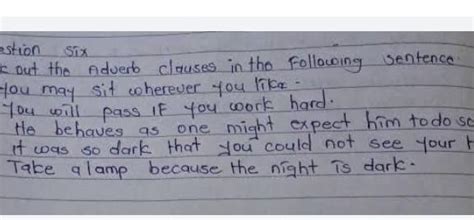 estion six
k out the Adverb clauses in the Following sentence.
You may sit wherever you like.
You will pass IF you work hard.
He behaves as one might expect him to do so
it was so dark that you could not see your h
Take a lamp because the night is dark.